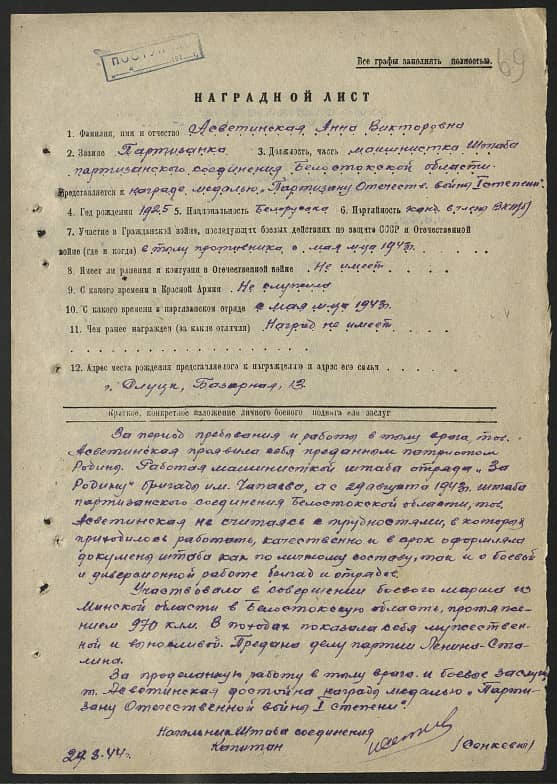 ПОСТУПИЛ
Все графы заполнять полностью.
69
НАГРАДНОЙ ЛИСТ
1. Фамилия, имя и отчество Асветинская Анна Викторовна
2. Звание Партизанка 3. Должность, часть машинистка Штаба
партизанского соединения Белостокской области.
Представляется к награде медалью „Партизану Отечеств. войны I степени".
4. Год рождения 1925 5. Национальность Белоруска 6. Партийность канд. в члены ВКП(б)
7. Участие в Гражданской войне, последующих боевых действиях по защите СССР и Отечественной
войне (где и когда) в тылу противника с мая м-ца 1943 г.
8. Имеет ли ранения и контузии в Отечественной войне Не имеет
9. С какого времени в Красной Армии Не служила
10. С какого времени в партизанском отряде с мая м-ца 1943 г.
11. Чем ранее награжден (за какие отличия) Наград не имеет
12. Адрес места рождения представляемого к награждению и адрес его семьи
г. Слуцк, Базарная, 13
Краткое, конкретное изложение личного боевого подвига или заслуг
За период пребывания и работы в тылу врага, тов.
Асветинская проявила себя преданным патриотом
Родины. Работая машинисткой штаба отряда „За
Родину" бригады им. Чапаева, а с 29 августа 1943 г. штаба
партизанского соединения Белостокской области, тов.
Асветинская не считаясь с трудностями, в которых
приходилось работать, качественно и в срок оформляла
документы штаба как по личному составу, так и о боевой
и диверсионной работе бригад и отрядов.
Участвовала в совершении боевого марша из
Минской области в Белостокскую область, протяже-
нием 970 клм. В походах показала себя мужествен-
ной и выносливой. Предана делу партии Ленина-Ста-
лина.
За проделанную работу в тылу врага и боевые заслуги
т. Асветинская достойна награды медалью „Парти-
зану Отечественной войны I степени".
Начальник Штаба соединения
Капитан (Сонкевич)
29.3.44 г.